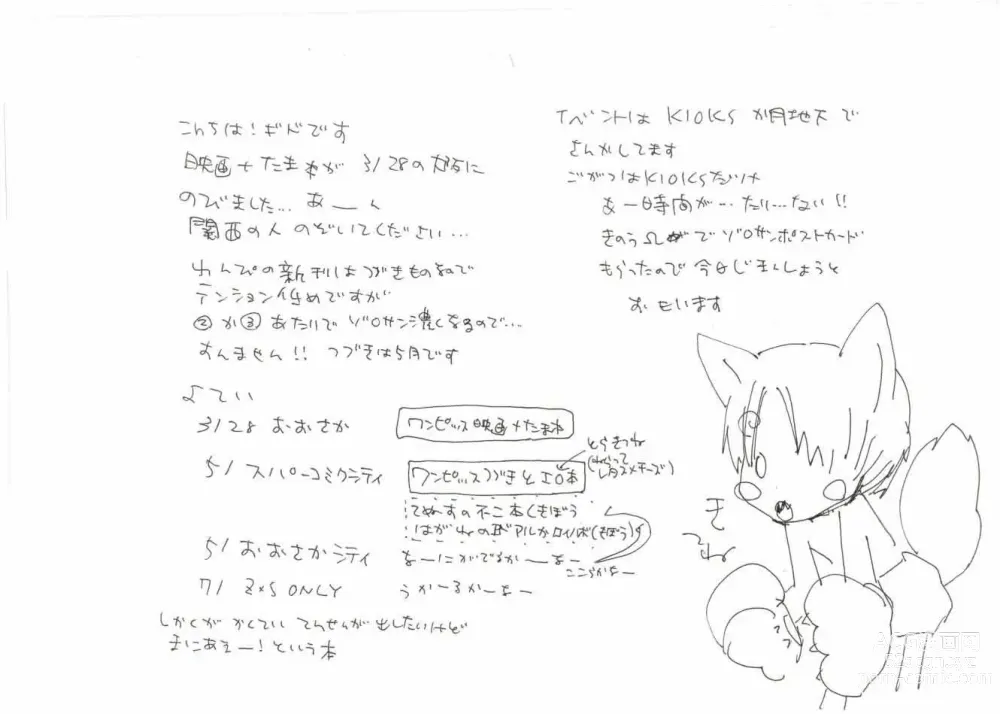 こんちは!ギドです
映画+たま本が 3/28の大阪に
のびました… あーん
関西の人 のぞいてください…
わんぴの新刊はつづきものなので
テンション低めですが
②か③あたりで ゾロサン濃くなるので…
すんません!! つづきは5月です
よてい
3/28 おおさか
ワンピッス映画+たま本
5/ スパーコミクシティ
ワンピッスつづきとエロ本
とらきつね
レタス×チーズ)
てぬすの不二本(きぼう
はがれんのエドアルかロイハボ(きぼう)
5/ おおさかシティ
なーにがでるかーなー
ここらかなー
7/ Z×S ONLY
うかーるかーなー
しかくが かくてい てんせんが出したいけど
まにあえー!という本
イベントは KIOKSが月地下で
さんかしてます
ごがつはKIOKSだけ
あー時間が…たり…ない!!
きのう でゾロサンポストカード
もらったので 今日じまんしようと
おもいます
きつね